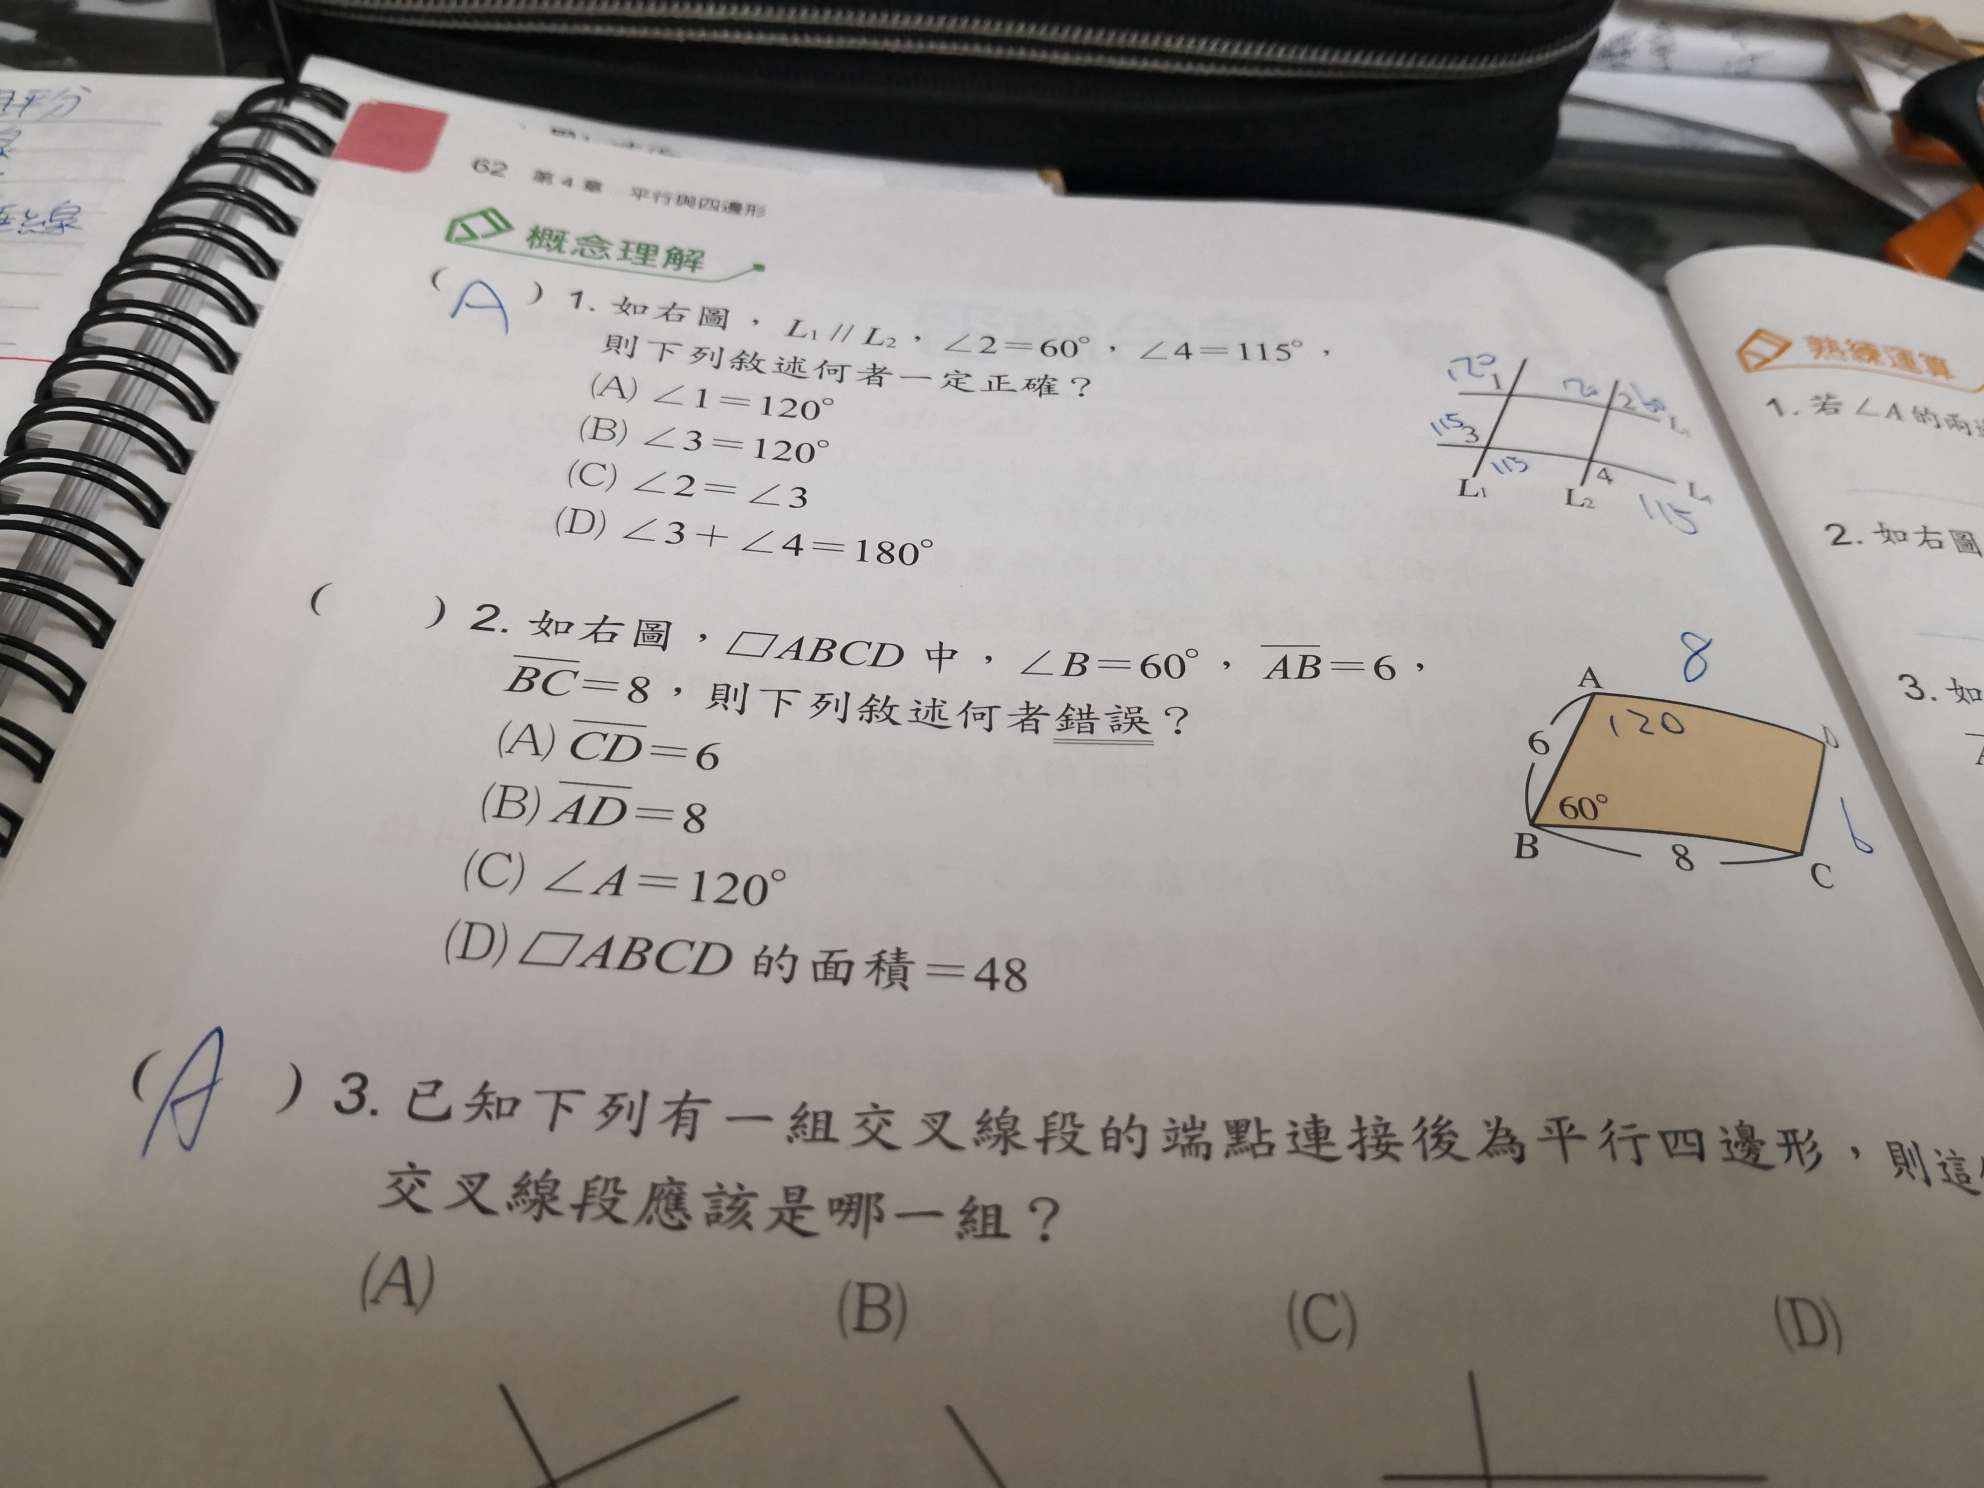 62 第4章 平行與四邊形
概念理解
(A) 1. 如右圖，L1 // L2，∠2＝60°，∠4＝115°，
則下列敘述何者一定正確？
(A) ∠1＝120°
(B) ∠3＝120°
(C) ∠2＝∠3
(D) ∠3＋∠4＝180°
120 1 120 2 60
115 3 115 4 115
L1 L2
( ) 2. 如右圖，▱ABCD 中，∠B＝60°，AB＝6，
BC＝8，則下列敘述何者錯誤？
(A) CD＝6
(B) AD＝8
(C) ∠A＝120°
(D) ▱ABCD 的面積＝48
8
A 120 D
6 60° 6
B 8 C
(A) 3. 已知下列有一組交叉線段的端點連接後為平行四邊形，則這
交叉線段應該是哪一組？
(A) (B) (C) (D)
熟練運算
1. 若∠A的兩
2. 如右圖
3. 如